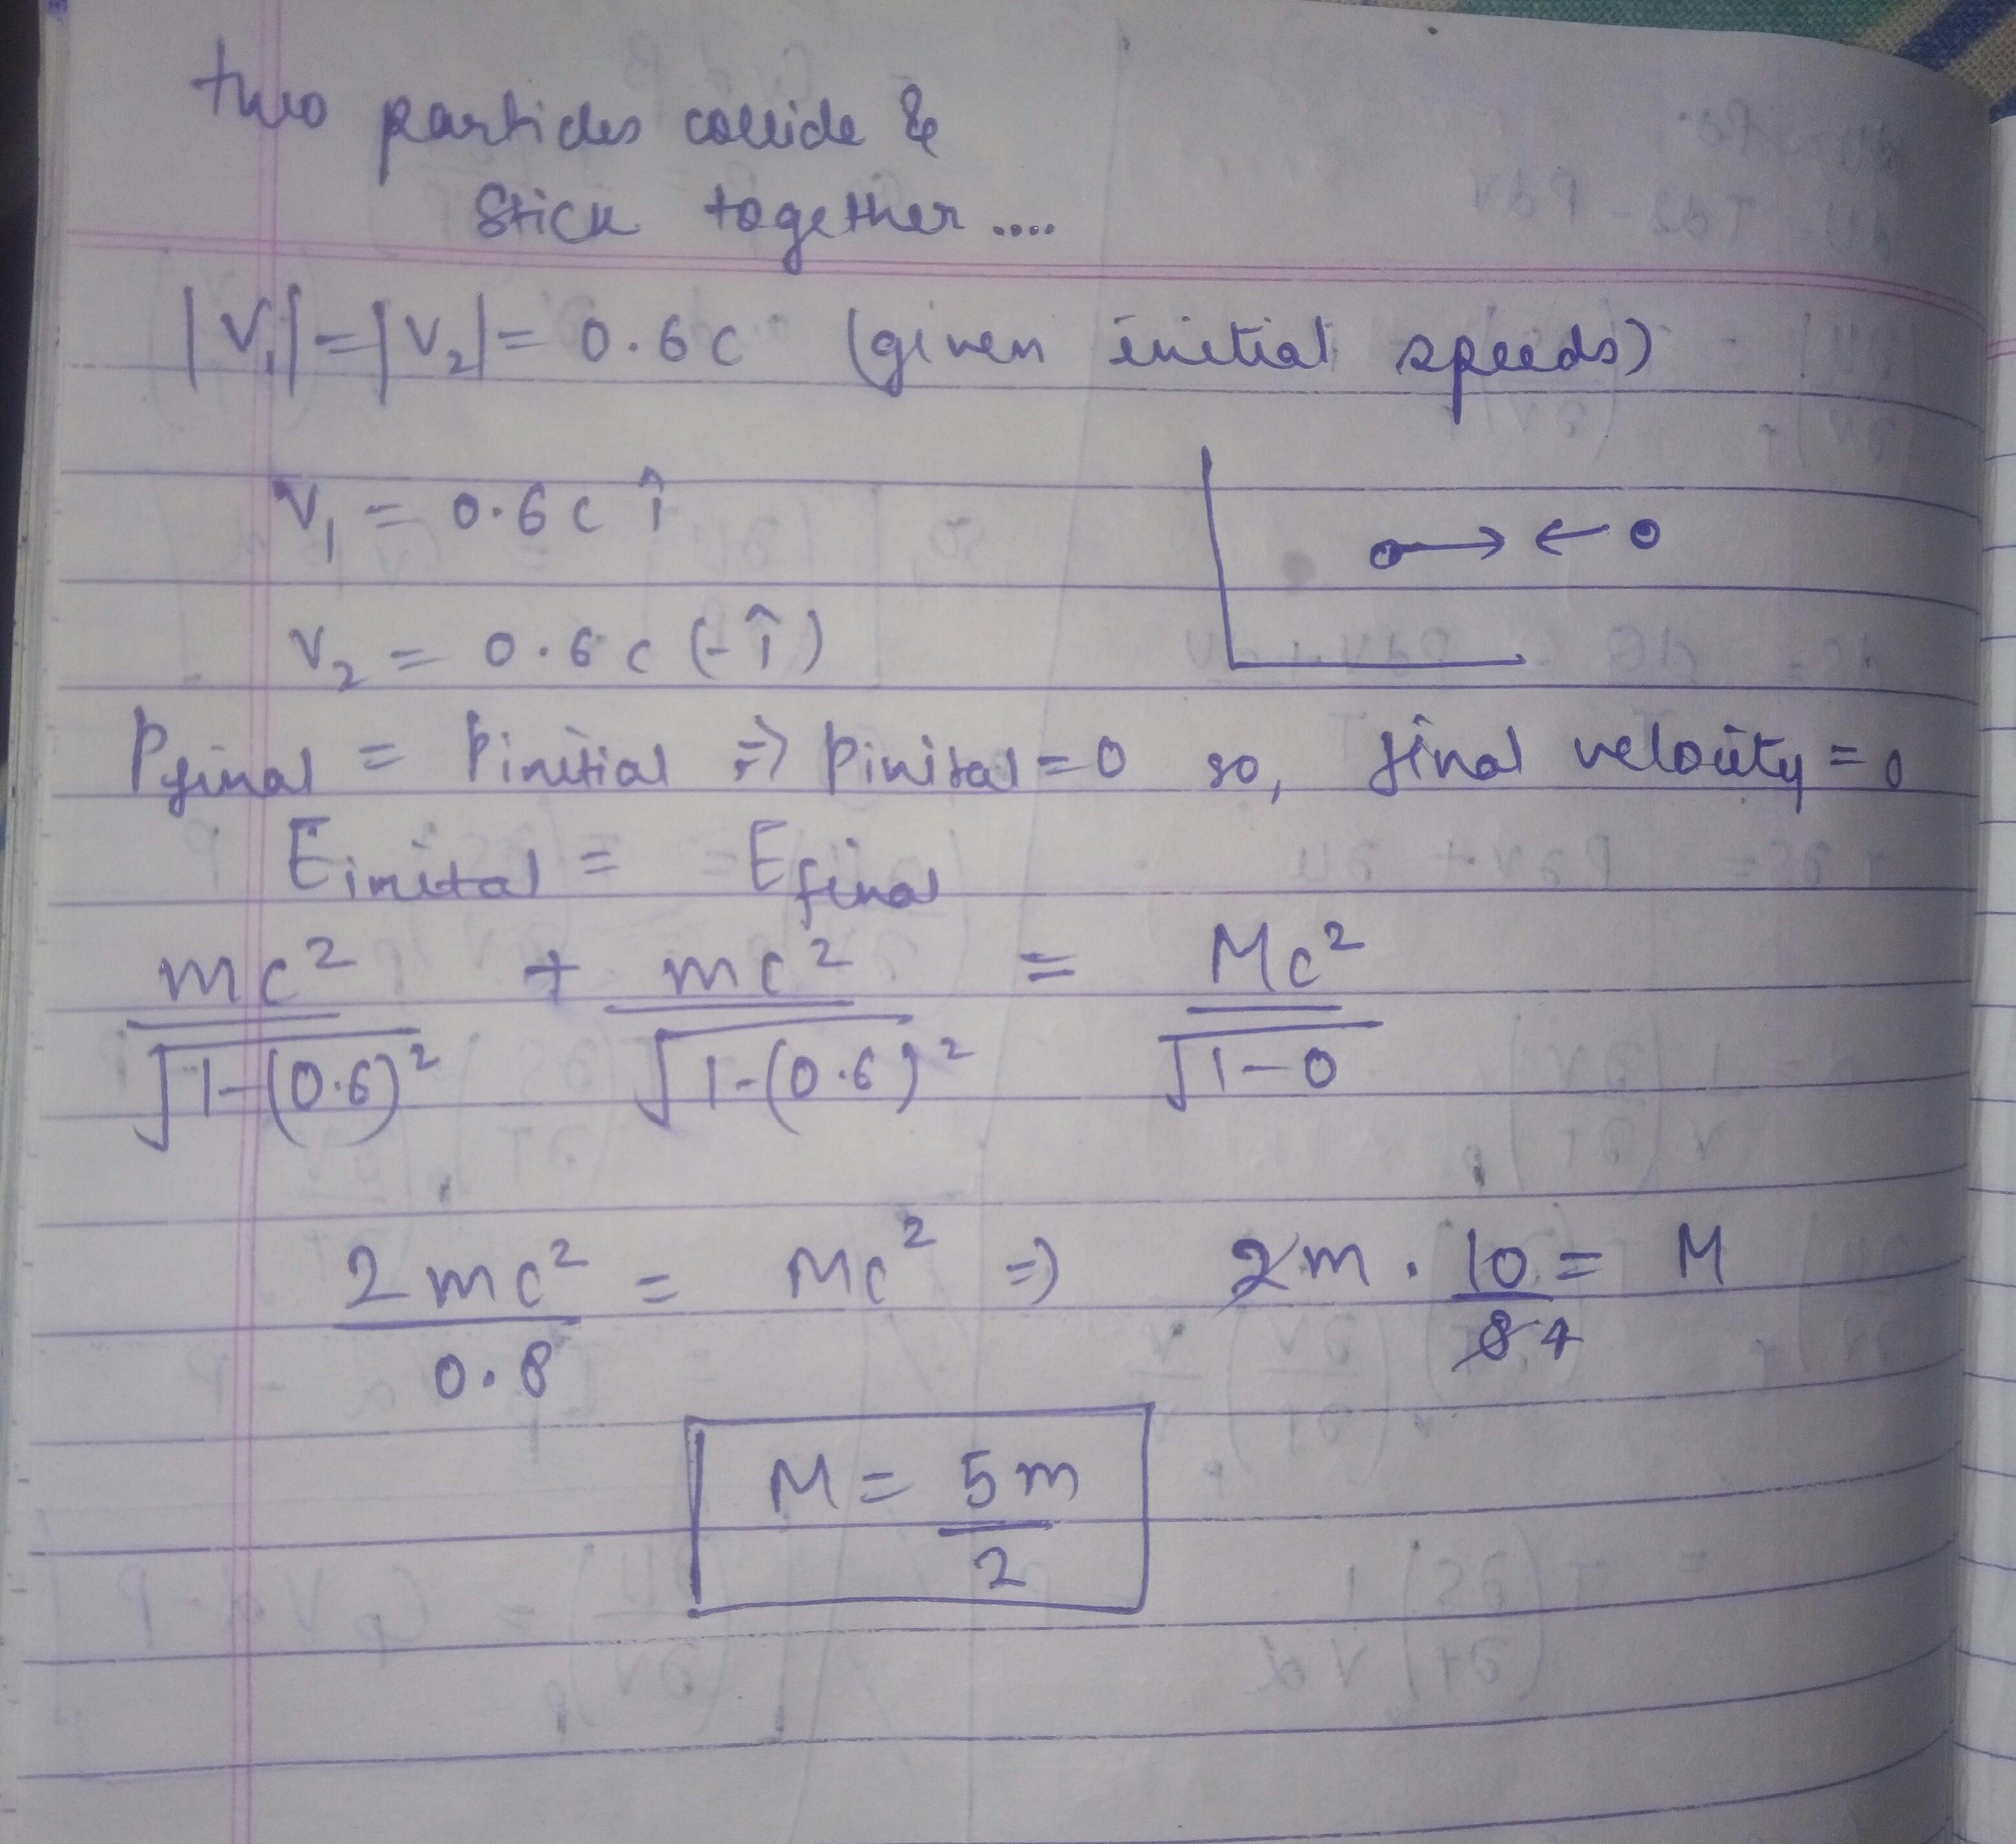 two particles collide &
stick together ....
|V₁| = |V₂| = 0.6c (given initial speeds)
V₁ = 0.6c î
V₂ = 0.6c (-î)
Pfinal = Pinitial ⇒ Pinital = 0 so, final velocity = 0
Einital = Efinal
mc²/√1-(0.6)² + mc²/√1-(0.6)² = Mc²/√1-0
2mc²/0.8 = Mc² ⇒ 2m . 10/8 4 = M
M = 5m/2